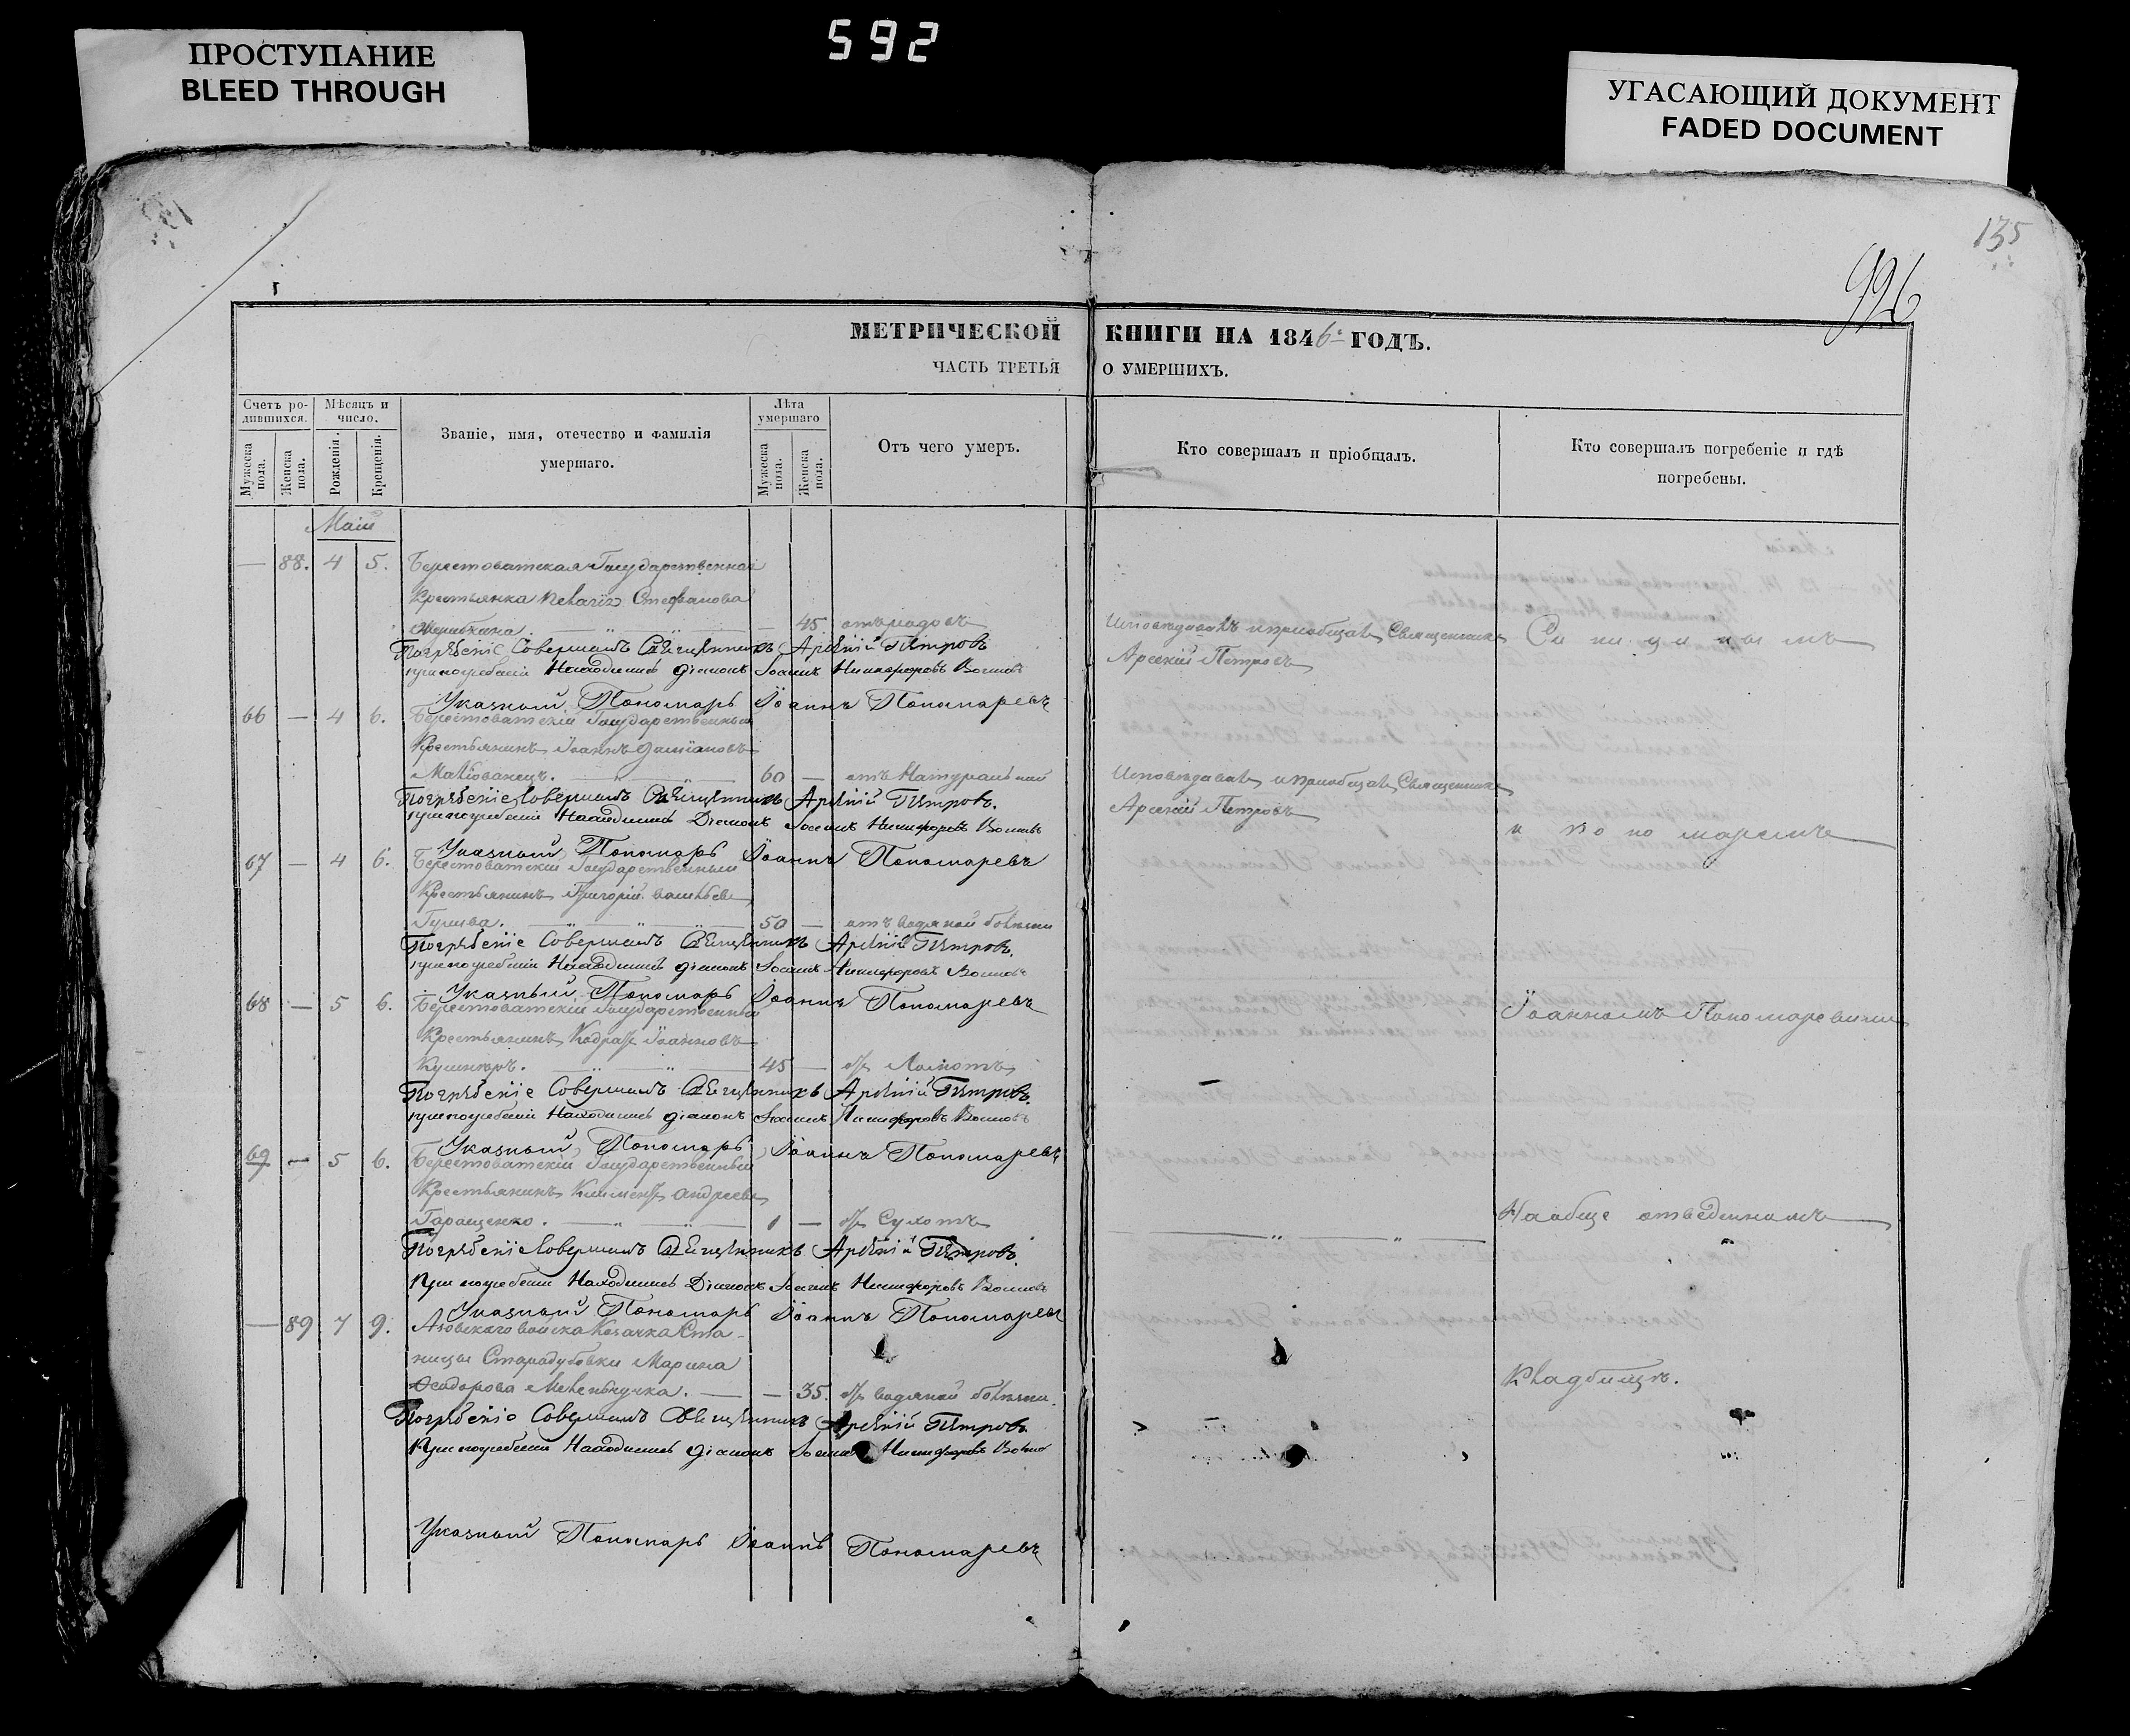 592
ПРОСТУПАНИЕ
BLEED THROUGH
УГАСАЮЩИЙ ДОКУМЕНТ
FADED DOCUMENT
135
996
МЕТРИЧЕСКОЙ КНИГИ НА 1846 ГОДЪ.
ЧАСТЬ ТРЕТЬЯ О УМЕРШИХЪ.
Счетъ ро-
дившихся.
Мужеска пола.
Женска пола.
Мѣсяцъ и
число.
Рожденія.
Крещенія.
Званіе, имя, отечество и фамилія
умершаго.
Лѣта
умершаго
Мужеска пола.
Женска пола.
Отъ чего умеръ.
Кто совершалъ и пріобщалъ.
Кто совершалъ погребеніе и гдѣ
погребены.
Маія
— 88. 4 5. Берестоватская Государственная
Крестьянка Стефанова
— 45 отъ родовъ
Исповѣдовалъ и пріобщалъ Священникъ
Арсеній Петровъ
Погрѣбеніе Совершалъ Священникъ Арсеній Петровъ
при погребеніи Находились діаконъ Іоаннъ Никифоровъ
Указный Пономарь Іоаннъ Пономаревъ
66 — 4 6. Берестоватскій Государственный
Крестьянинъ Іоаннъ Даміановъ
60 — отъ Натуральной
Исповѣдовалъ и пріобщалъ Священникъ
Арсеній Петровъ
Погрѣбеніе Совершалъ Священникъ Арсеній Петровъ.
при погребеніи Находились Діаконъ Іоаннъ Никифоровъ
и пономаремъ
Указный Пономарь Іоаннъ Пономаревъ
67 — 4 6. Берестоватскій Государственный
Крестьянинъ Григорій Васильевъ
50 — отъ водяной болѣзни
Погрѣбеніе Совершалъ Священникъ Арсеній Петровъ.
при погребеніи Находились діаконъ Іоаннъ Никифоровъ
Указный Пономарь Іоаннъ Пономаревъ
68 — 5 6. Берестоватскій Государственный
Іоанномъ Пономаревымъ
Крестьянинъ Кодратъ Іоанновъ
Кушниръ. 45 —
Погрѣбеніе Совершалъ Священникъ Арсеній Петровъ.
при погребеніи Находились діаконъ Іоаннъ Никифоровъ
Указный Пономарь Іоаннъ Пономаревъ
69 — 5 6. Берестоватскій Государственный
Крестьянинъ Климентъ Андреевъ
Гаращенко. 1 — отъ Сухотъ
На обще отведенномъ
Погрѣбеніе Совершалъ Священникъ Арсеній Петровъ.
При погребеніи Находились Діаконъ Іоаннъ Никифоровъ
Указный Пономарь Іоаннъ Пономаревъ
— 89 7 9. Азовскаго войска Козачка Ста-
ницы Стародубовки Марина
Кладбищѣ.
Феодорова — 35. отъ водяной болѣзни.
Погрѣбеніе Совершалъ Священникъ Арсеній Петровъ
При погребеніи Находились діаконъ Никифоровъ
Указный Пономарь Іоаннъ Пономаревъ